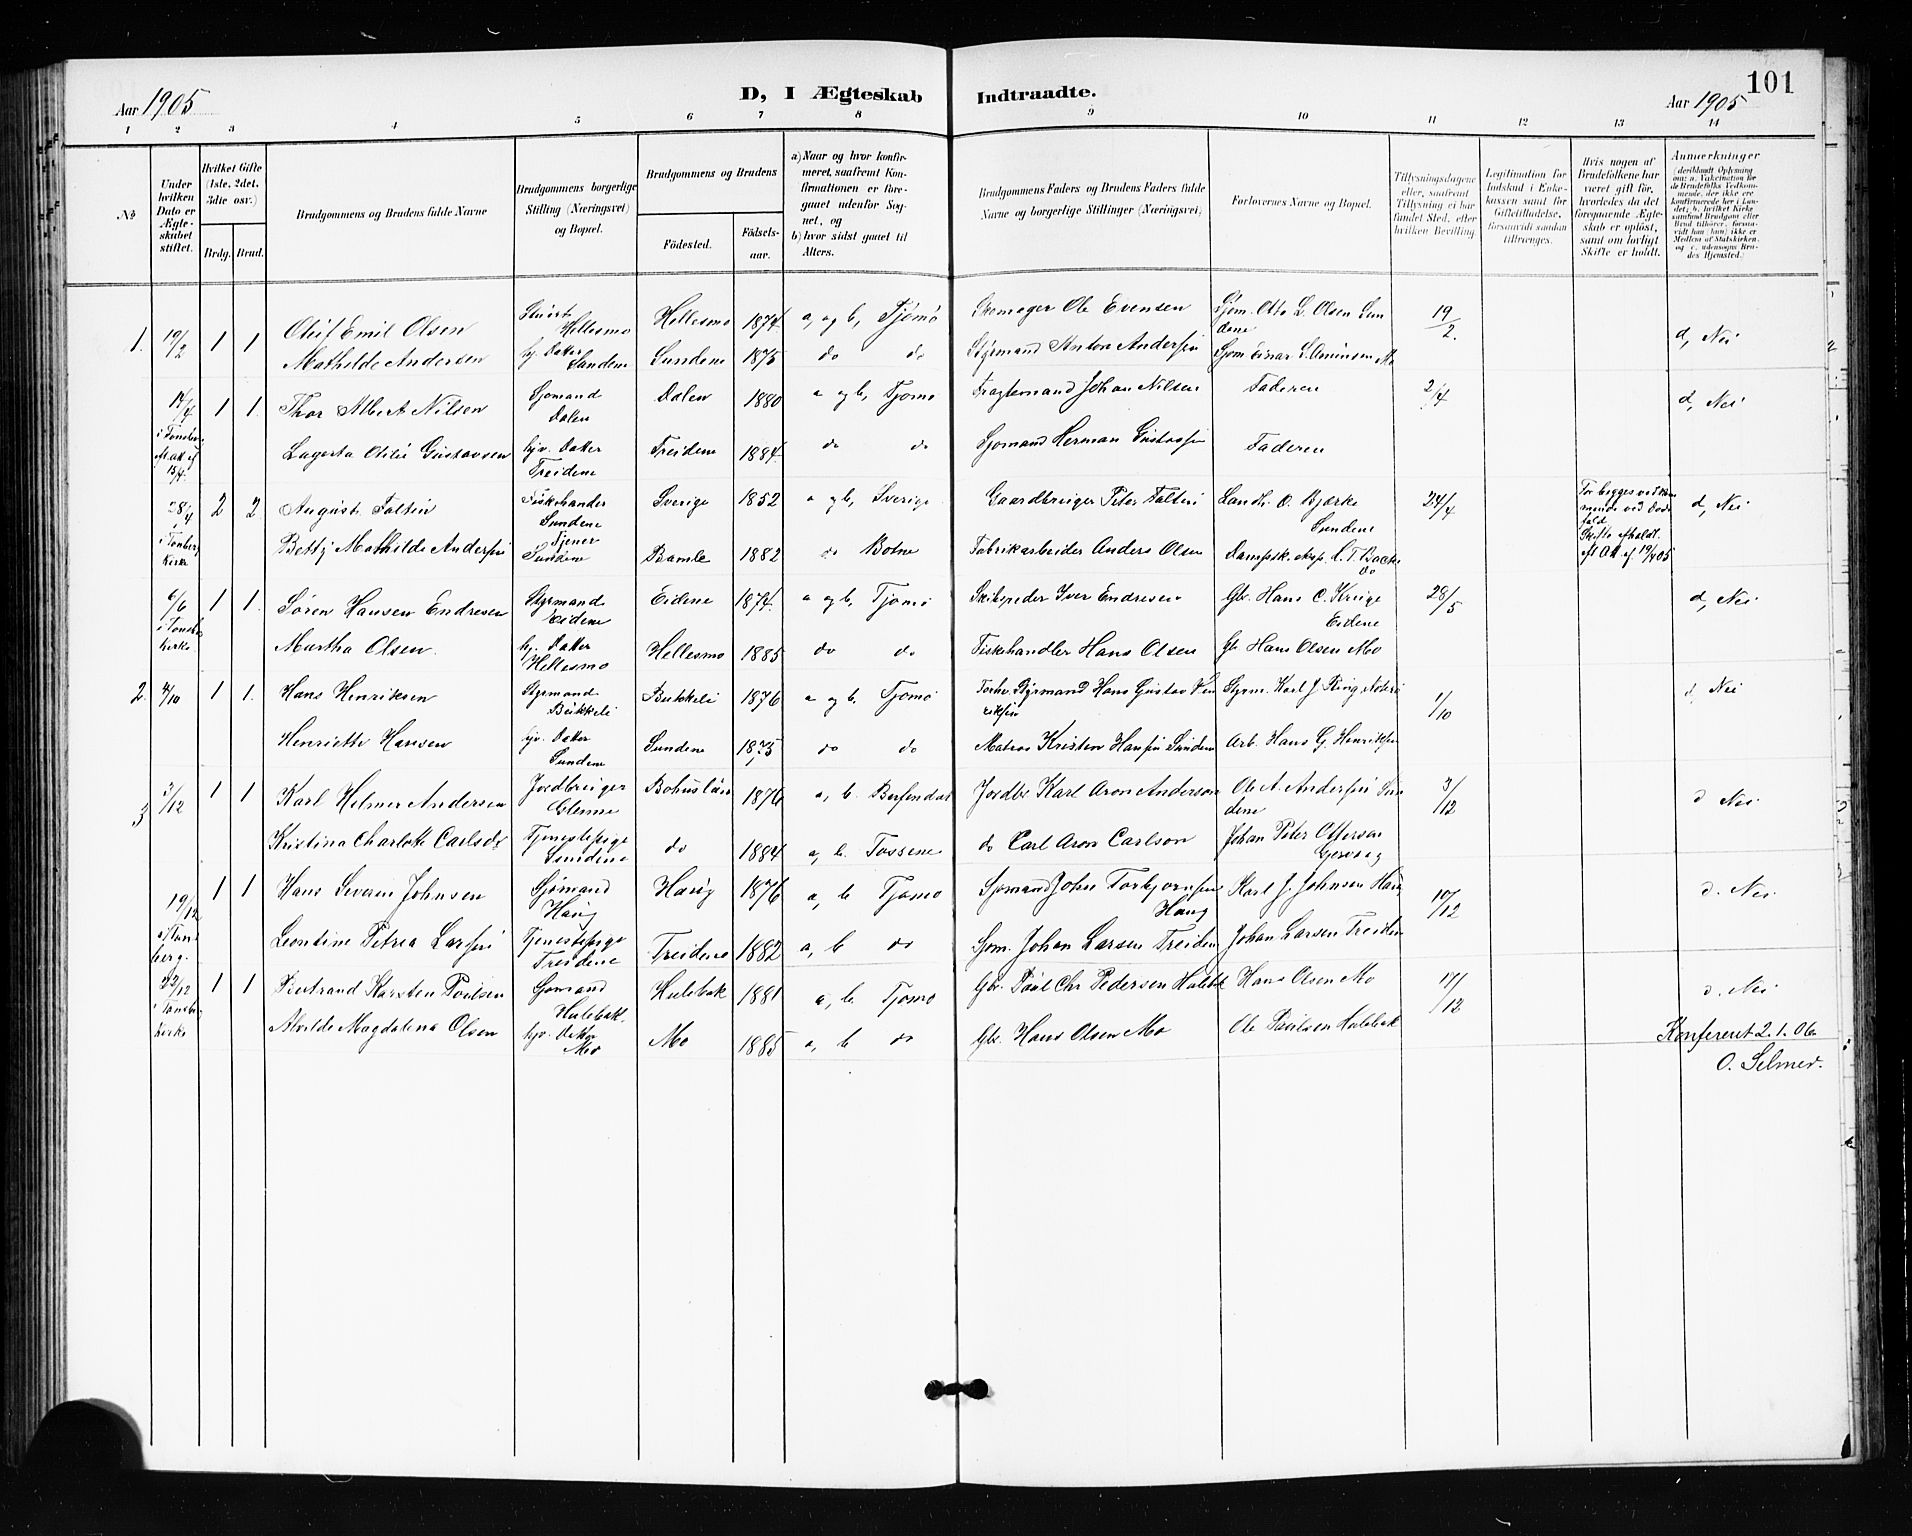 101
Aar 1905
D, I Ægteskab Indtraadte.
Aar 1905
1 2 3 4 5 6 7 8 9 10 11 12 13 14
No
Under hvilken Dato er Ægteskabet stiftet.
Hvilket Gifte (1ste, 2det, 3die osv.)
Brdg. Brud.
Brudgommens og Brudens fulde Navne
Brudgommens borgerlige Stilling (Næringsvei) og Bopæl.
Brudgommens og Brudens
Födested.
Födsels-aar.
a) Naar og hvor konfirmeret, saafremt Konfirmationen er foregaaet udenfor Sognet, og
b) hvor sidst gaaet til Alters.
Brudgommens Faders og Brudens Faders fulde Navne og borgerlige Stillinger (Næringsvei)
Forlovernes Navne og Bopæl.
Tillysningsdagene eller, saafremt Tillysning ei har fundet Sted, efter hvilken Bevilling
Legitimation for Indskud i Enkekassen samt for Giftetilladelse, forsaavidt saadan tiltrænges.
Hvis nogen af Brudefolkene har været gift för, hvorledes da det foregaaende Ægteskab er oplöst, samt om lovligt Skifte er holdt.
Anmerkninger
1. 19/2 1 1 Olaf Emil Olsen Hellesmo Hellesmo 1874 a, og b, Tjømø Skomager Ole Evensen Sjøm. Otto L. Olsen Sundene 19/2. d, Nei
Mathilde Andersen hj. Datter Sundene Sundene 1875 do do Styrmand Anton Andersen
14/4 1 1. Thor Albert Nilsen Sjømand Dalen Dalen 1880 a og b, Tjømø Fragtemand Johan Nilsen Faderen 2/4 d, Nei
Lagerta Gustavsen hjv. Datter Treidene Treidene 1884. do do Sjømand Herman Gustavsen Faderen
28/4 i Tønsberg Kirke 2 2 August Faltin Fiskehandler Sundene Sverige 1852 a og b, Sverige Gaardbruger Peter Faltin O. Bjerke Sundene 24/4 d, Nei
Betty Mathilde Andersen Tjener Sundene Bamle 1882 do Botne Fabrikarbeider Anders Olsen
6/6 i Tønsberg Kirke 1 1. Søren Hansen Endresen Styrmand Eidene Eidene 1874. a og b, Tjømø Skibsreder Iver Endresen Gbr. Hans C. Eidene 28/5 d, Nei
Martha Olsen. hj. Datter Hellesmo Hellesmo 1885 do do Fiskehandler Hans Olsen Gb Hans Olsen Mo
2. 4/10 1 1. Hans Henriksen Styrmand Bukkeli Bukkeli 1876 a og b, Tjømø Styrmand Hans Gustav Henriksen Styrm. Karl J. 1/10 d, Nei
Henriette Hansen hjv. Datter Sundene Sundene 1875 do do Matros Kristen Hansen Sundene Arb. Hans G. Henriksen
3 3/12 1 1 Karl Helmer Andersen Jordbruger Glenne Bohuslän 1876 a, b. Jordbr Karl Aron Anderson Ole A. Andersen Sundene 3/12 d Nei
Kristina Charlotte Carlsdr Tjenestepige Sundene do 1884 a, b. Tossene do Carl Aron Carlson Johan Peter Ottersen
19/12 i Tønsberg. 1 1 Hans Severin Johnsen Sjømand Haug Haug 1876 a, b Tjømø Sjømand John Torbjørnsen Haug Karl J. Johnsen Haug 10/12 d. Nei
Leontine Petrea Larsen Tjenestepige Treidene Treidene 1882 a, b do Sjøm. Johan Larsen Treiden Johan Larsen Treiden
22/12 i Tønsberg Kirke 1 1 Karsten Poulsen Sjømand Hulebak. Hulebak 1881 a, b. Tjømø Gbr. Poul Chr Pedersen Hulebak Hans Olsen Mo 17/12 d. Nei
Alvilde Magdalena Olsen hjv. Datter Mo Mo 1885 a, b do Gbr. Hans Olsen Mo Ole Poulsen Hulebak
Konfereret 2.1.06
O. Selmer.